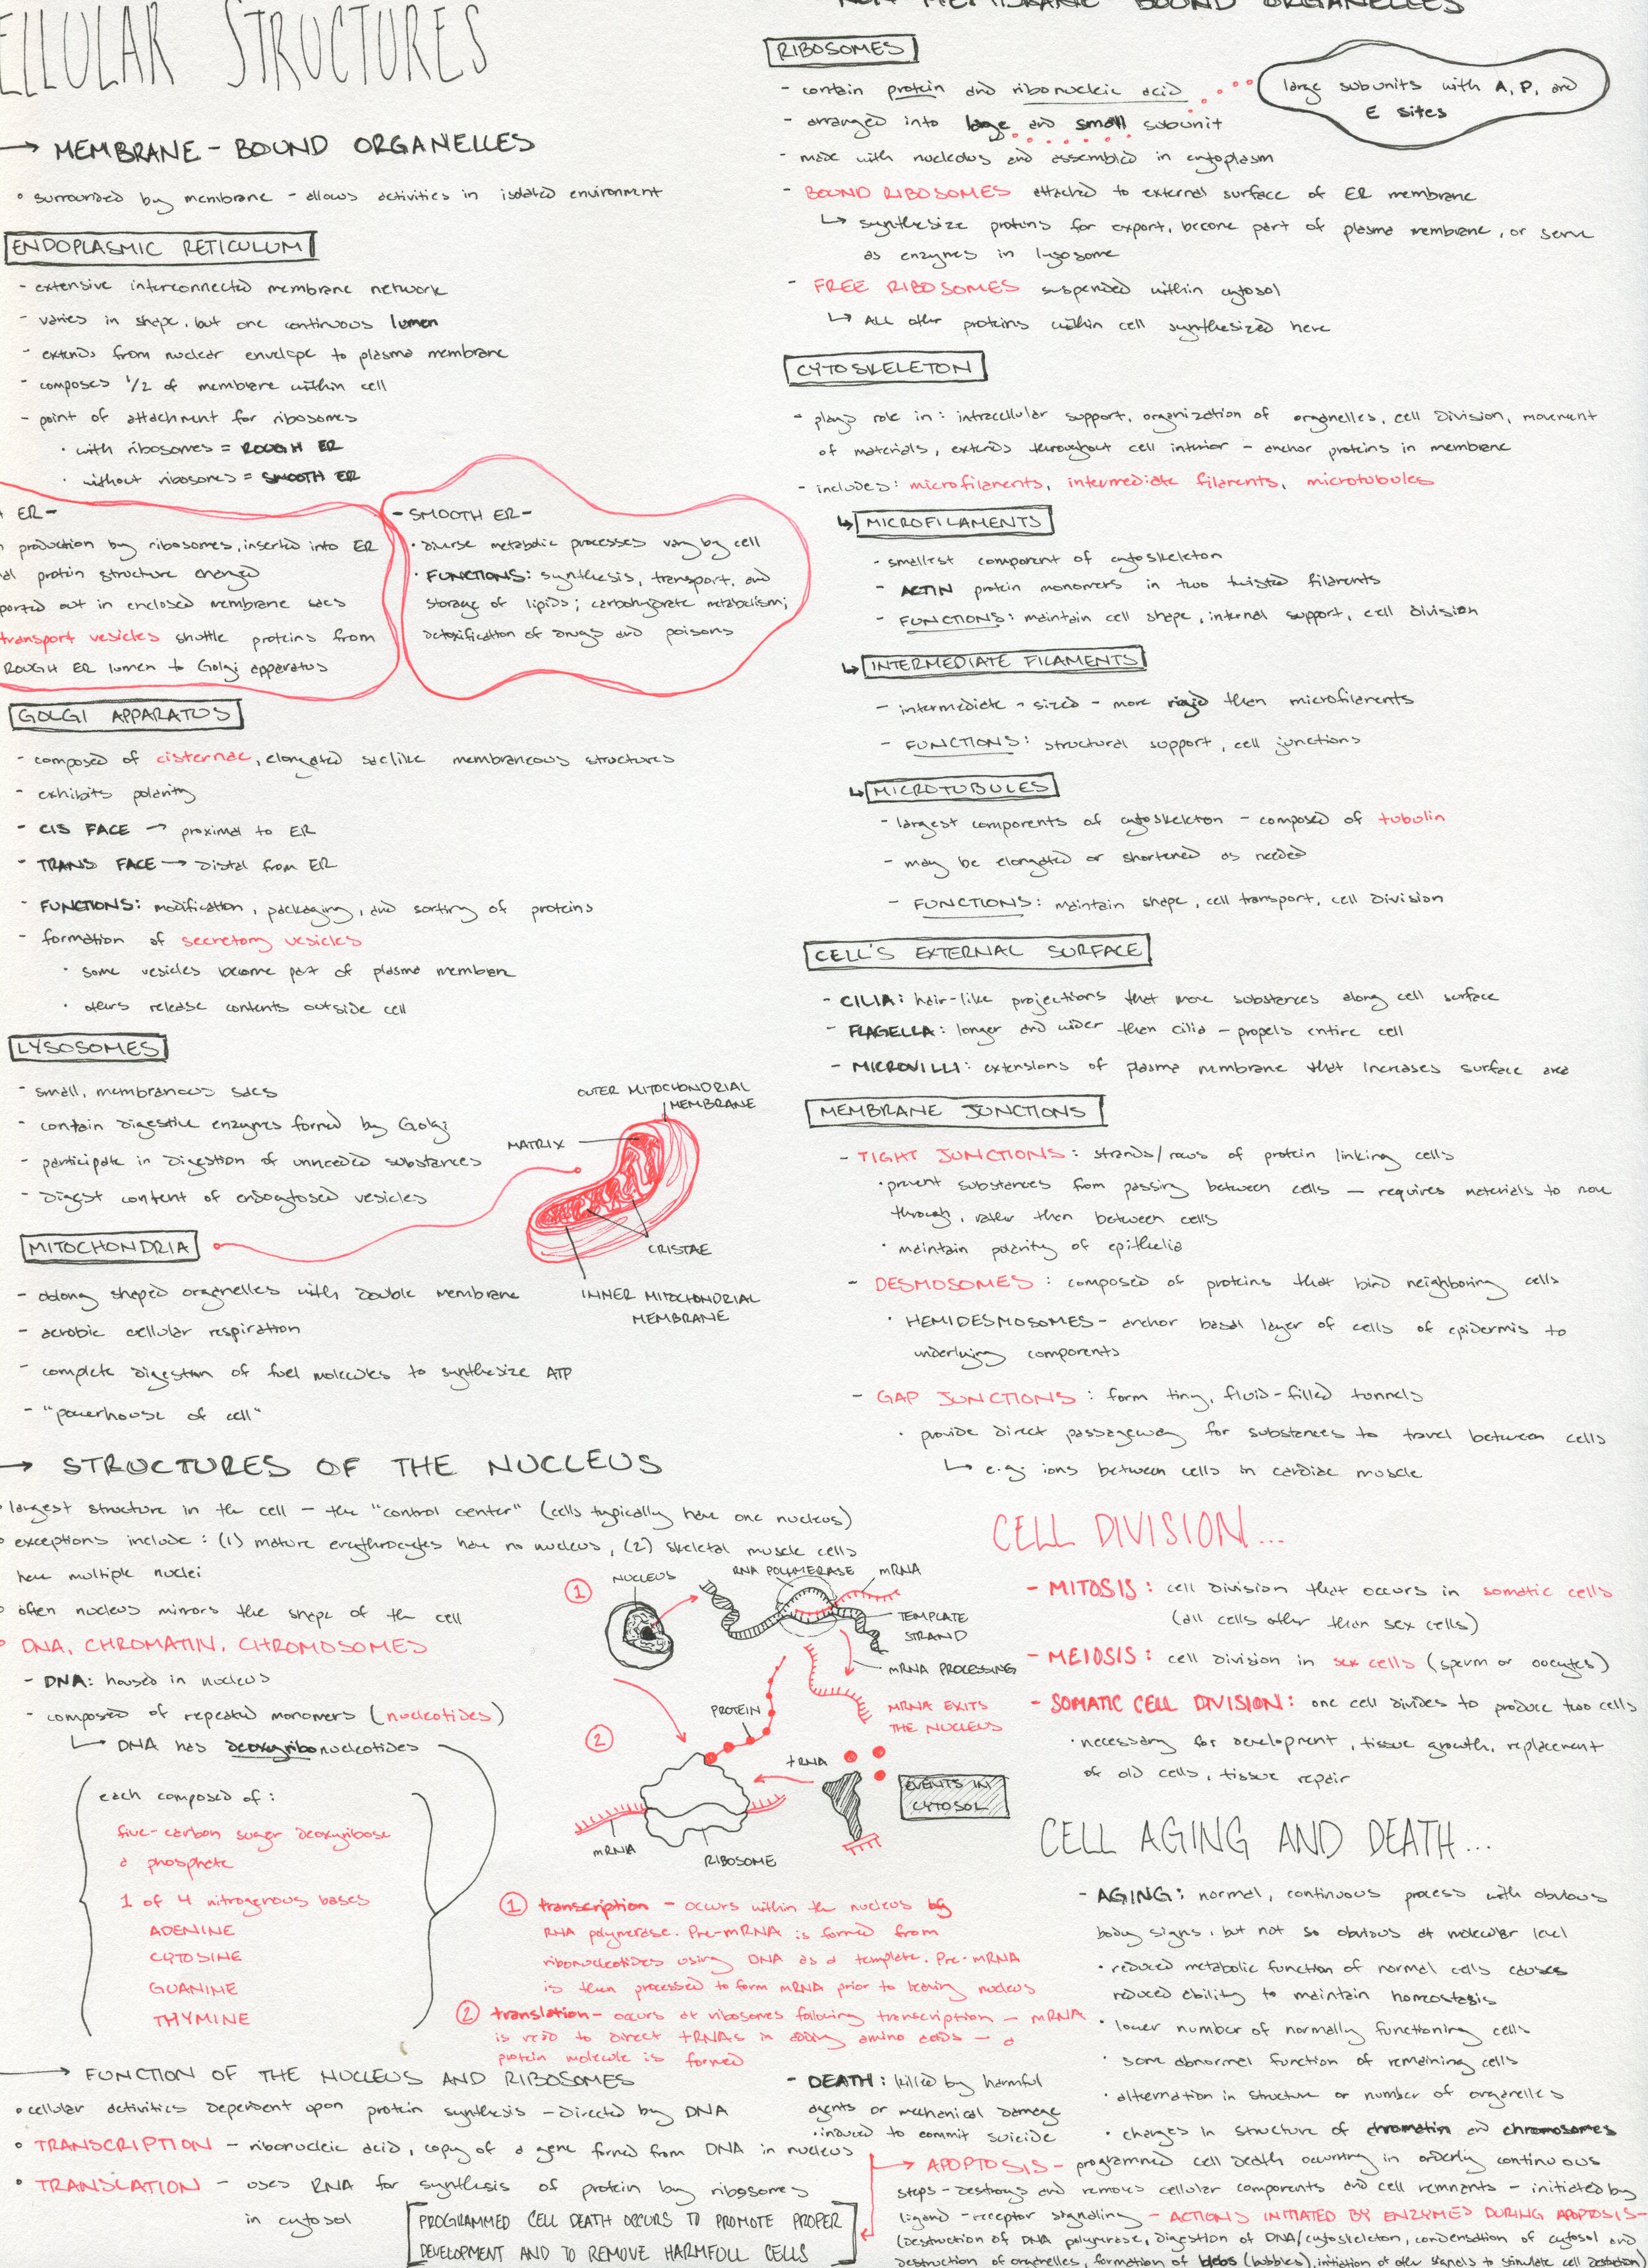 ELLULAR STRUCTURES
→ MEMBRANE-BOUND ORGANELLES
• surrounded by membrane - allows activities in isolated environment
ENDOPLASMIC RETICULUM
- extensive interconnected membrane network
- varies in shape, but one continuous lumen
- extends from nuclear envelope to plasma membrane
- composes 1/2 of membrane within cell
- point of attachment for ribosomes
• with ribosomes = ROUGH ER
• without ribosomes = SMOOTH ER
ER-
production by ribosomes, inserted into ER
al protein structure changed
ported out in enclosed membrane sacs
transport vesicles shuttle proteins from
ROUGH ER lumen to Golgi apparatus
- SMOOTH ER -
• diverse metabolic processes vary by cell
• FUNCTIONS: synthesis, transport, and
storage of lipids; carbohydrate metabolism;
detoxification of drugs and poisons
GOLGI APPARATUS
- composed of cisternae, elongated saclike membraneous structures
- exhibits polarity
- CIS FACE → proximal to ER
- TRANS FACE → distal from ER
- FUNCTIONS: modification, packaging, and sorting of proteins
- formation of secretory vesicles
• some vesicles become part of plasma membrane
• others release contents outside cell
LYSOSOMES
- small, membraneous sacs
- contain digestive enzymes formed by Golgi
- participate in digestion of unneeded substances
- digest content of endocytosed vesicles
MITOCHONDRIA
- oblong shaped organelles with double membrane
- aerobic cellular respiration
- complete digestion of fuel molecules to synthesize ATP
- "powerhouse of cell"
OUTER MITOCHONDRIAL
MEMBRANE
MATRIX
CRISTAE
INNER MITOCHONDRIAL
MEMBRANE
→ STRUCTURES OF THE NUCLEUS
• largest structure in the cell - the "control center" (cells typically have one nucleus)
• exceptions include: (1) mature erythrocytes have no nucleus, (2) skeletal muscle cells
have multiple nuclei
• often nucleus mirrors the shape of the cell
• DNA, CHROMATIN, CHROMOSOMES
- DNA: housed in nucleus
- composed of repeated monomers (nucleotides)
↳ DNA has deoxyribonucleotides
each composed of:
five-carbon sugar deoxyribose
a phosphate
1 of 4 nitrogenous bases
ADENINE
CYTOSINE
GUANINE
THYMINE
1
NUCLEUS
RNA POLYMERASE
mRNA
TEMPLATE
STRAND
mRNA PROCESSING
MRNA EXITS
THE NUCLEUS
2
PROTEIN
tRNA
EVENTS IN
CYTOSOL
mRNA
RIBOSOME
1 transcription - occurs within the nucleus by
RNA polymerase. Pre-mRNA is formed from
ribonucleotides using DNA as a template. Pre-mRNA
is then processed to form mRNA prior to leaving nucleus
2 translation - occurs at ribosomes following transcription - mRNA
is read to direct tRNAs in adding amino acids - a
protein molecule is formed
→ FUNCTION OF THE NUCLEUS AND RIBOSOMES
• cellular activities dependent upon protein synthesis - directed by DNA
• TRANSCRIPTION - ribonucleic acid, copy of a gene formed from DNA in nucleus
• TRANSLATION - uses RNA for synthesis of protein by ribosomes
in cytosol
PROGRAMMED CELL DEATH OCCURS TO PROMOTE PROPER
DEVELOPMENT AND TO REMOVE HARMFULL CELLS
NON MEMBRANE BOUND ORGANELLES
RIBOSOMES
- contain protein and ribonucleic acid
- arranged into large and small subunit
large subunits with A, P, and
E sites
- made with nucleolus and assembled in cytoplasm
- BOUND RIBOSOMES attached to external surface of ER membrane
↳ synthesize proteins for export, become part of plasma membrane, or serve
as enzymes in lysosome
- FREE RIBOSOMES suspended within cytosol
↳ ALL other proteins within cell synthesized here
CYTOSKELETON
- plays role in: intracellular support, organization of organelles, cell division, movement
of materials, extends throughout cell interior - anchor proteins in membrane
- includes: microfilaments, intermediate filaments, microtubules
↳ MICROFILAMENTS
- smallest component of cytoskeleton
- ACTIN protein monomers in two twisted filaments
- FUNCTIONS: maintain cell shape, internal support, cell division
↳ INTERMEDIATE FILAMENTS
- intermediate - sized - more rigid than microfilaments
- FUNCTIONS: structural support, cell junctions
↳ MICROTUBULES
- largest components of cytoskeleton - composed of tubulin
- may be elongated or shortened as needed
- FUNCTIONS: maintain shape, cell transport, cell division
CELL'S EXTERNAL SURFACE
- CILIA: hair-like projections that move substances along cell surface
- FLAGELLA: longer and wider than cilia - propels entire cell
- MICROVILLI: extensions of plasma membrane that increases surface area
MEMBRANE JUNCTIONS
- TIGHT JUNCTIONS: strands/rows of protein linking cells
• prevent substances from passing between cells - requires materials to move
through, rather than between cells
• maintain polarity of epithelia
- DESMOSOMES: composed of proteins that bind neighboring cells
• HEMIDESMOSOMES - anchor basal layer of cells of epidermis to
underlying components
- GAP JUNCTIONS: form tiny, fluid-filled tunnels
• provide direct passageway for substances to travel between cells
↳ e.g: ions between cells in cardiac muscle
CELL DIVISION...
- MITOSIS: cell division that occurs in somatic cells
(all cells other than sex cells)
- MEIOSIS: cell division in sex cells (sperm or oocytes)
- SOMATIC CELL DIVISION: one cell divides to produce two cells
• necessary for development, tissue growth, replacement
of old cells, tissue repair
CELL AGING AND DEATH...
- AGING: normal, continuous process with obvious
body signs, but not so obvious at molecular level
• reduced metabolic function of normal cells causes
reduced ability to maintain homeostasis
• lower number of normally functioning cells
• some abnormal function of remaining cells
• alternation in structure or number of organelles
• changes in structure of chromatin and chromosomes
- DEATH: killed by harmful
agents or mechanical damage
• induced to commit suicide
→ APOPTOSIS - programmed cell death occurring in orderly continuous
steps - destroys and removes cellular components and cell remnants - initiated by
ligand - receptor signaling - ACTIONS INITIATED BY ENZYMES DURING APOPTOSIS -
(destruction of DNA polymerase, digestion of DNA/cytoskeleton, condensation of cytosol and
destruction of organelles, formation of blebs (bubbles), initiation of other signals to stimulate cell destruction